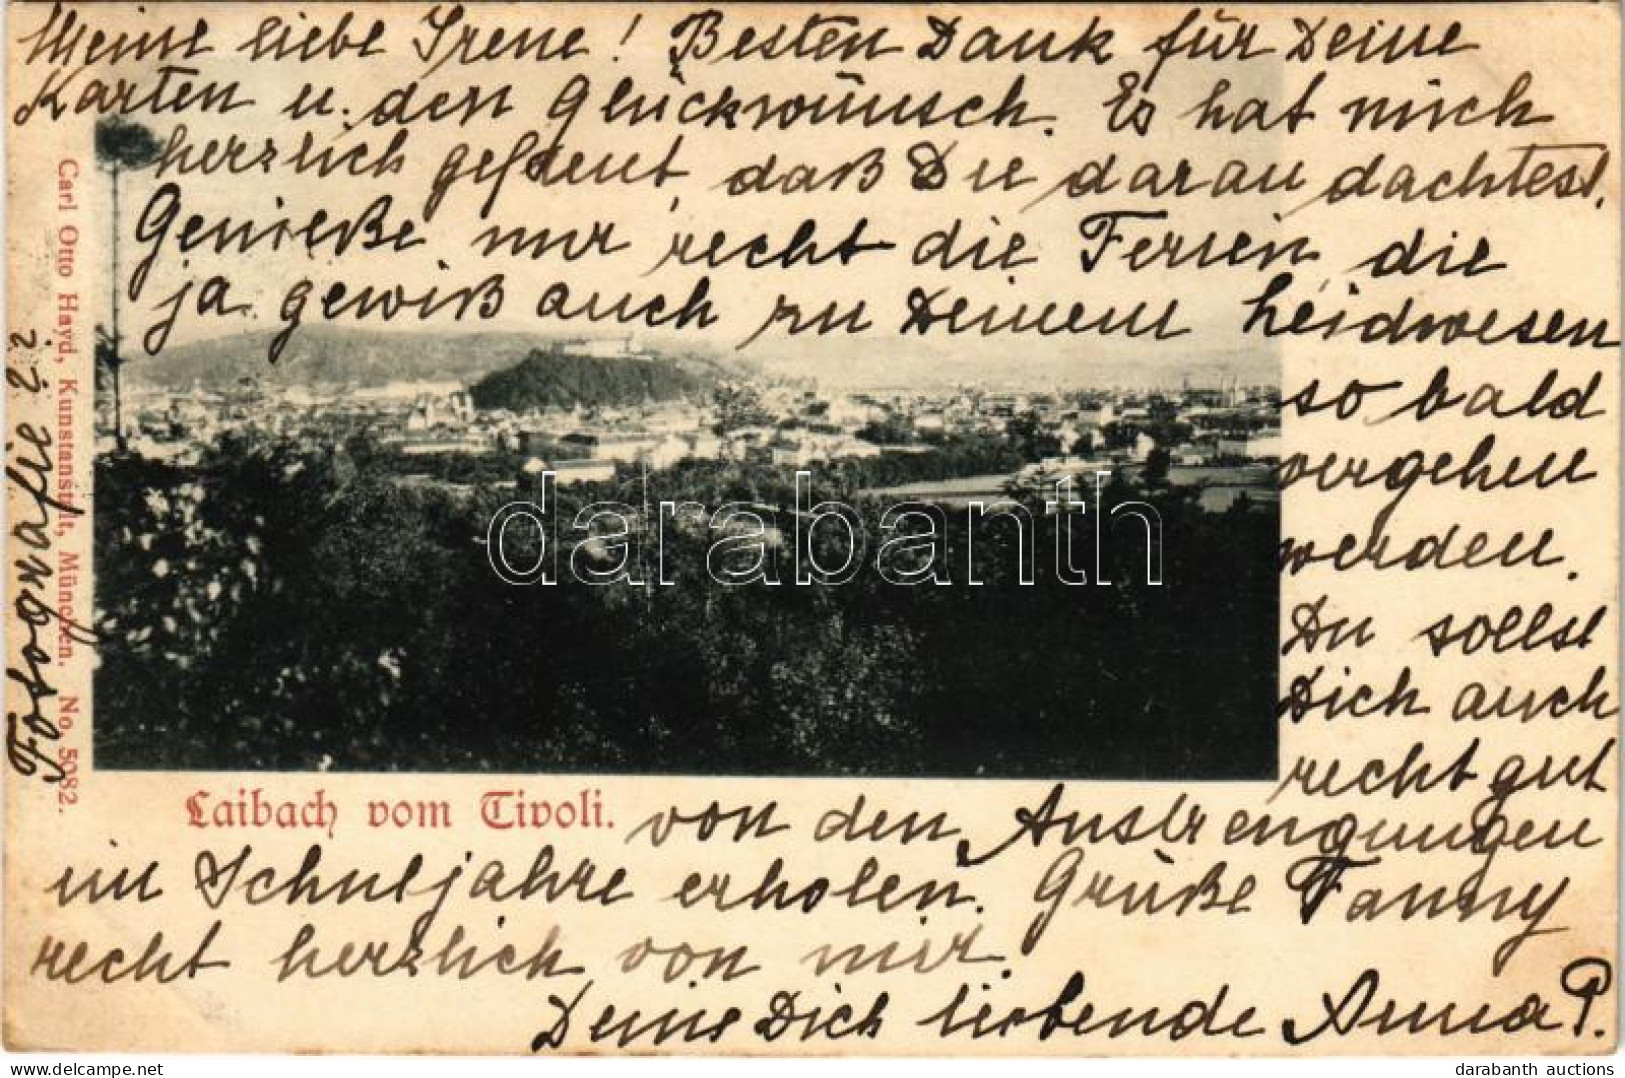 Meine liebe Irene! Besten Dank für Deine
Karten u. den Glückwünsch. Es hat mich
herzlich gefreut, daß Du daran dachtest.
Genieße nur recht die Ferien, die
ja gewiß auch zu Deinem Leidwesen
so bald
vergehen
werden.
Du sollst
Dich auch
recht gut
von den Anstrengungen
im Schuljahre erholen. Grüße Fanny
recht herzlich von mir.
Deine Dich liebende Anna P.
Fotografie ??
Carl Otto Hayd, Kunstanstalt, München. No. 5082.
Laibach vom Tivoli.
darabanth
darabanth auctions